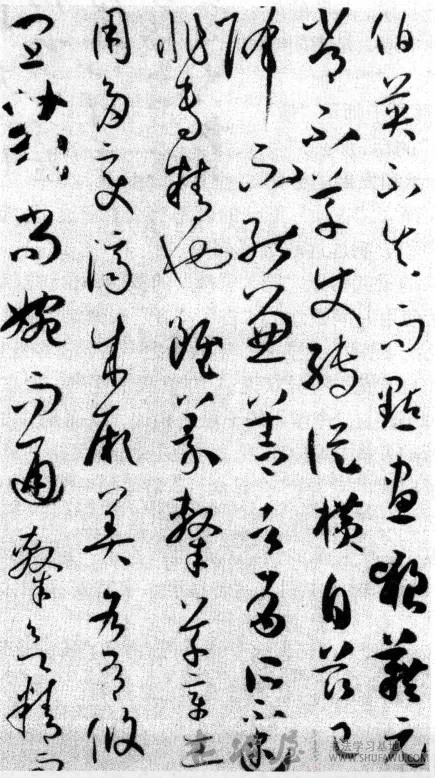 伯英不真而點畫狼藉元
常不草使轉縱橫自茲已
降不能兼善者有所不逮
非專精也雖篆隸草章工
用多變濟成厥美各有攸
宜篆尚婉而通隸欲精而
书法学习基地
WWW.SHUFAWU.COM